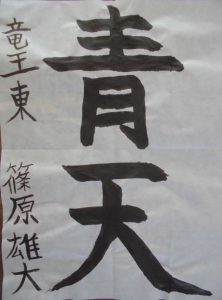 青天
竜王東
篠原雄大